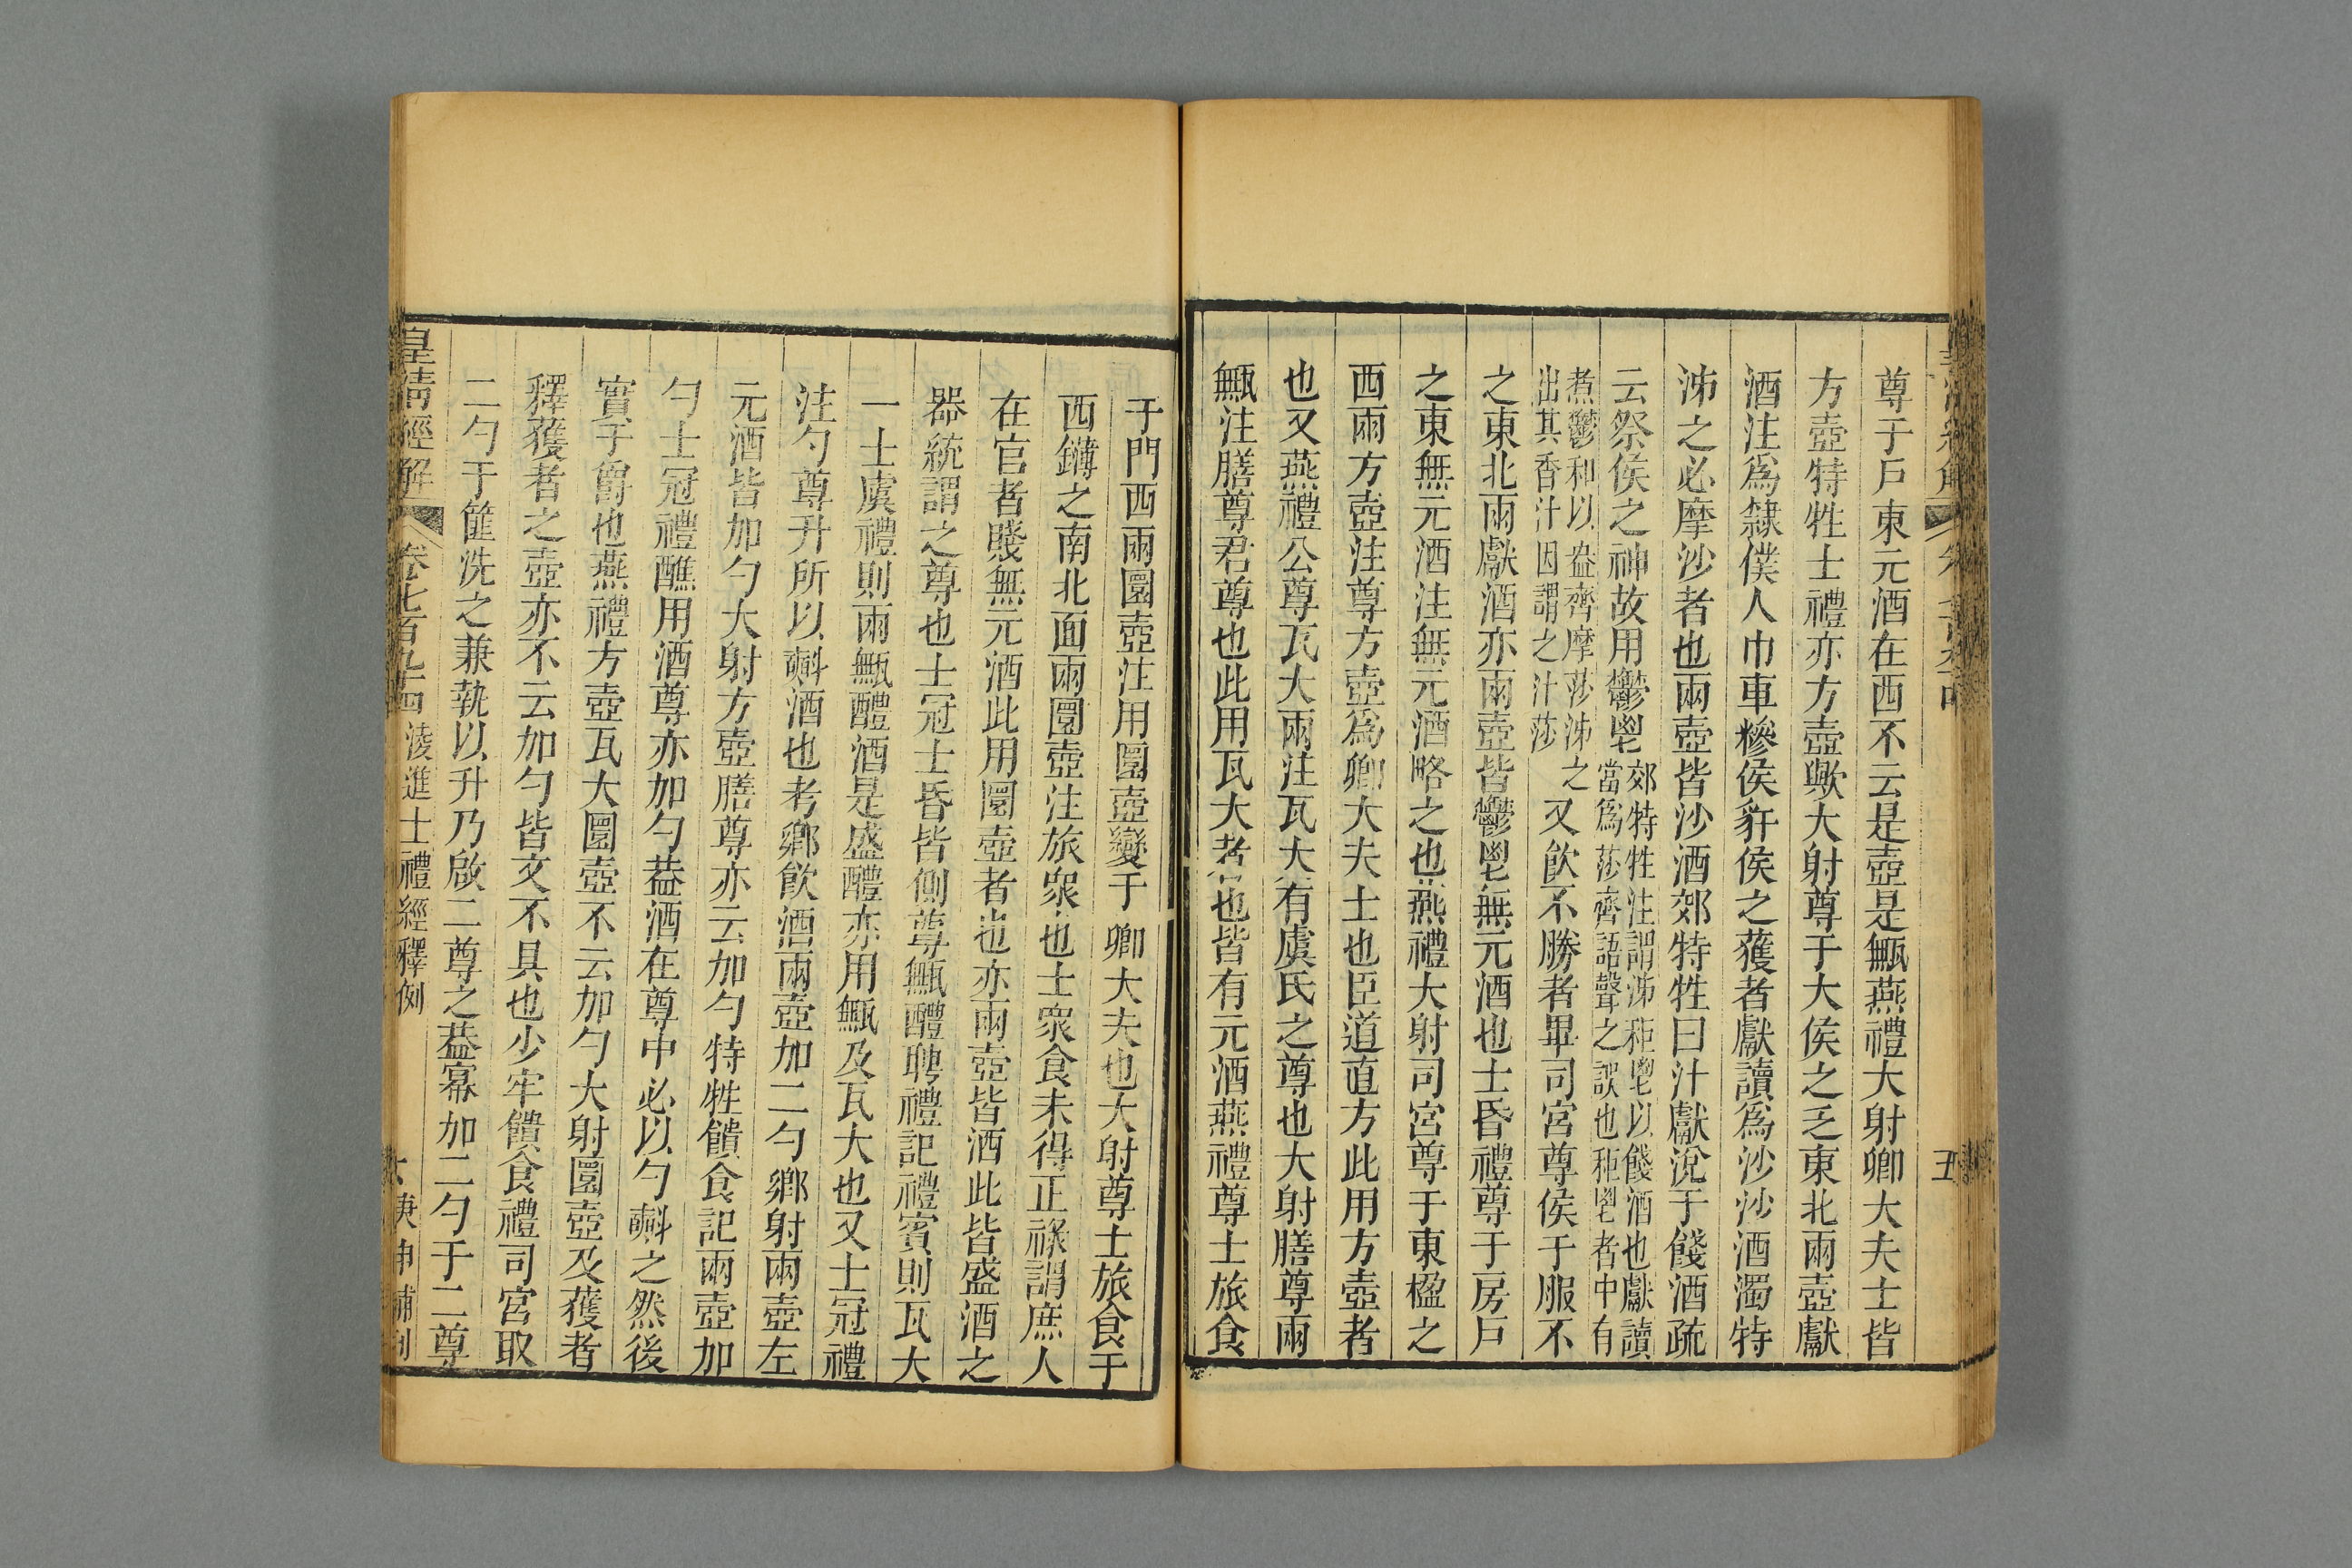 尊于戶東元酒在西不云是壺是甒燕禮大射卿大夫士皆
方壺特牲士禮亦方壺歟大射尊于大侯之乏東北兩壺獻
酒注爲隸僕人巾車糝侯豻侯之獲者獻讀爲沙沙酒濁特
沛之必摩沙者也兩壺皆沙酒郊特牲曰汁獻涗于餞酒疏
云祭侯之神故用鬱鬯郊特牲注謂沛秬鬯以餞酒也獻讀
當爲莎齊語聲之誤也秬鬯者中有
煮鬱和以盎齊摩莎沛之
出其香汁因謂之汁莎
又飲不勝者畢司宮尊侯于服不
之東北兩獻酒亦兩壺皆鬱鬯無元酒也士昏禮尊于房戶
之東無元酒注無元酒略之也燕禮大射司宮尊于東楹之
西兩方壺注尊方壺爲卿大夫士也臣道直方此用方壺者
也又燕禮公尊瓦大兩注瓦大有虞氏之尊也大射膳尊兩
甒注膳尊君尊也此用瓦大者也皆有元酒燕禮尊士旅食
于門西兩圜壺注用圜壺變于卿大夫也大射尊士旅食于
西鑮之南北面兩圜壺注旅衆也士衆食未得正祿謂庶人
在官者賤無元酒此用圜壺者也亦兩壺皆酒此皆盛酒之
器統謂之尊也士冠士昏皆側尊甒醴聘禮記禮賓則瓦大
一士虞禮則兩甒醴酒是盛醴亦用甒及瓦大也又士冠禮
注勺尊升所以㪺酒也考鄉飲酒兩壺加二勺鄉射兩壺左
元酒皆加勺大射方壺膳尊亦云加勺特牲饋食記兩壺加
勺士冠禮醮用酒尊亦加勺葢酒在尊中必以勺㪺之然後
實于爵也燕禮方壺瓦大圜壺不云加勺大射圜壺及獲者
釋獲者之壺亦不云加勺皆文不具也少牢饋食禮司宮取
二勺于篚洗之兼執以升乃啟二尊之葢冪加二勺于二尊
皇清經解 卷七百九十四 淩進士禮經釋例 庚申補刊